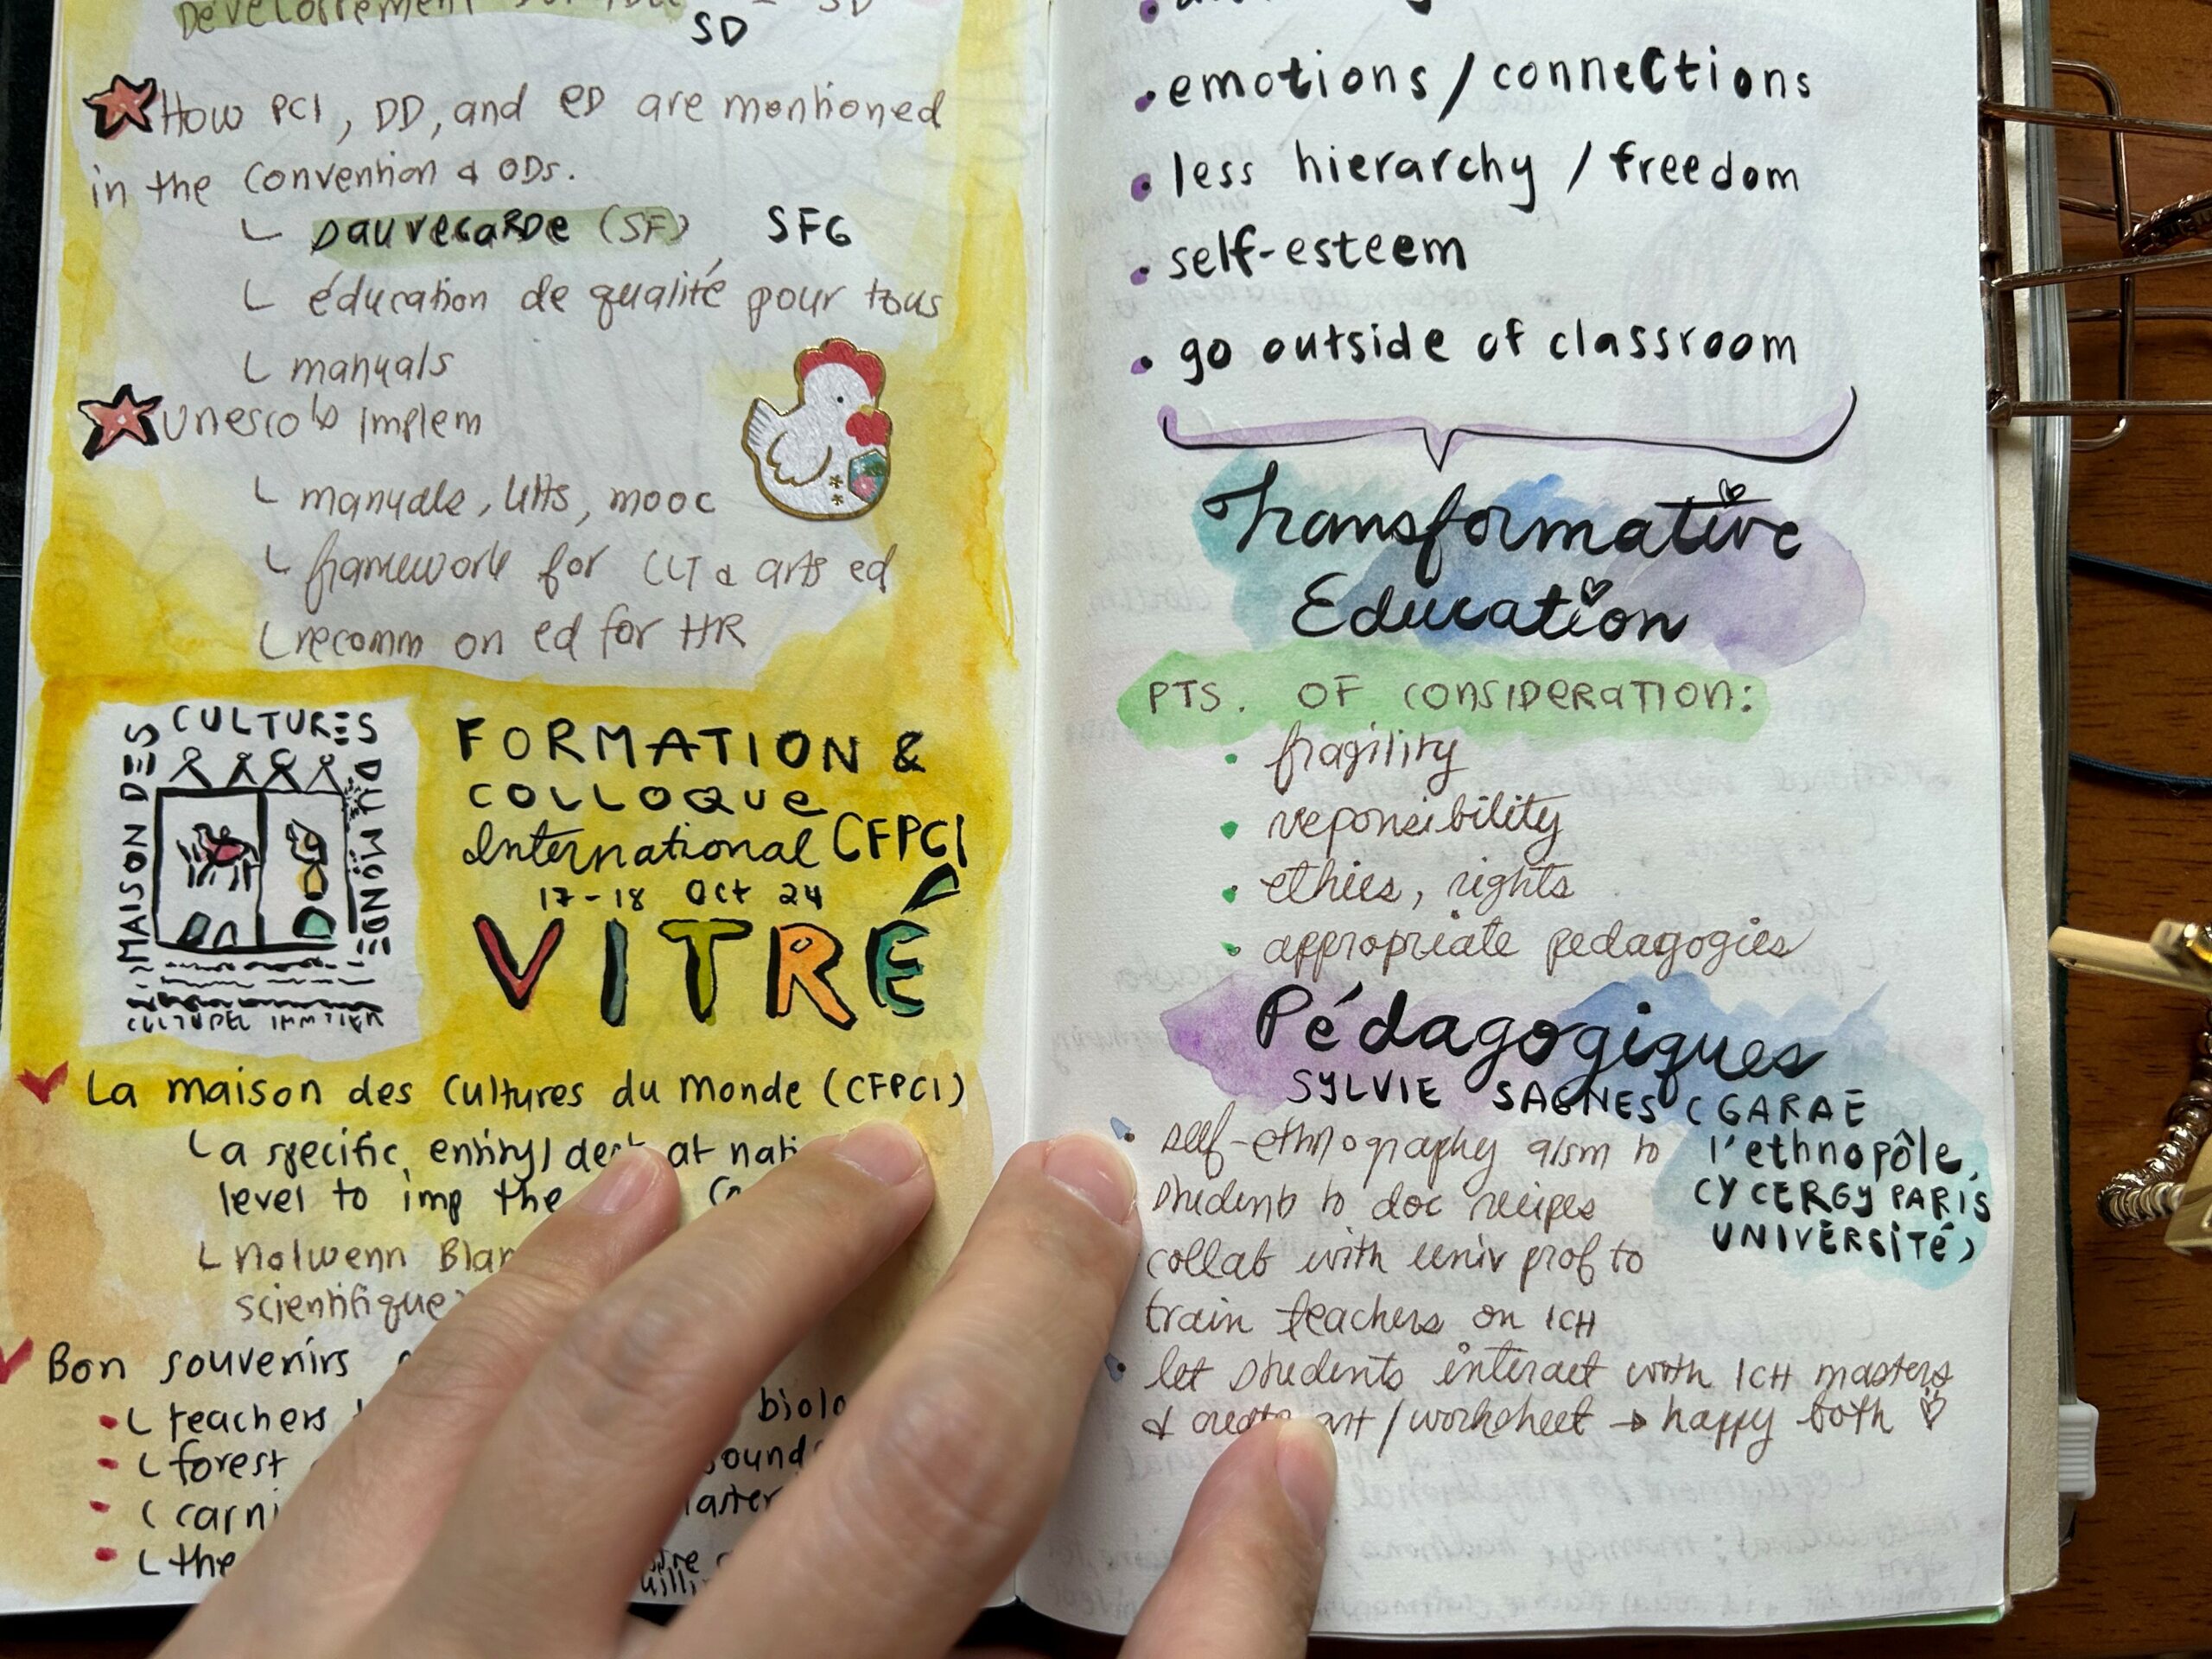 Développement
SD
SD
How PCI, DD, and ED are mentioned
in the Convention & ODs.
sauvegarde (SF) SFG
éducation de qualité pour tous
manuals
UNESCO's implem
manuals, LHs, mooc
framework for CLT & arts ed
recomm on ed for HR
MAISON DES CULTURES DU MONDE
CULTUREL IMMTIER
FORMATION &
COLLOQUE
International CFPCI
17-18 Oct 24
VITRÉ
La maison des cultures du monde (CFPCI)
a specific entity/ at nati
level to imp the
Nolwenn Blan
scientifique
Bon souvenirs
teachers biolo
forest sound
carni aster
the
emotions / connections
less hierarchy / freedom
self-esteem
go outside of classroom
Transformative
Education
PTS. OF CONSIDERATION:
fragility
reponsibility
ethics, rights
appropriate pedagogies
Pédagogiques
SYLVIE SAGNES (GARAE
l'ethnopôle,
CY CERGY PARIS
UNIVERSITé)
self-ethnography aism to
students to doc recipes
collab with univ prof to
train teachers on ICH
let students interact with ICH masters
& create art / worksheet → happy both